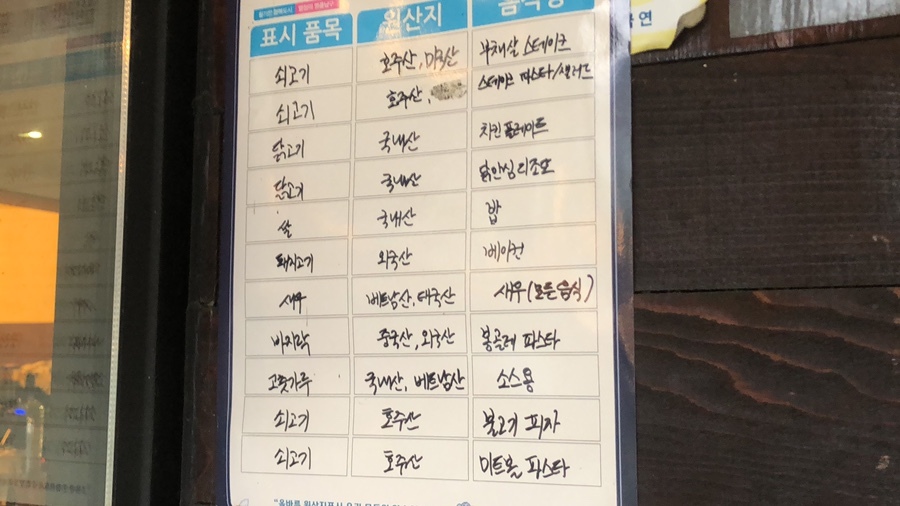 표시 품목 원산지 음식명
쇠고기 호주산, 미국산 부채살 스테이크
쇠고기 호주산, 스테이크 파스타/샐러드
닭고기 국내산 치킨 플레이트
닭고기 국내산 닭안심 리조또
쌀 국내산 밥
돼지고기 외국산 베이컨
새우 베트남산, 태국산 새우(모든음식)
바지락 중국산, 외국산 봉골레 파스타
고춧가루 국내산, 베트남산 소스용
쇠고기 호주산 불고기 피자
쇠고기 호주산 미트볼 파스타